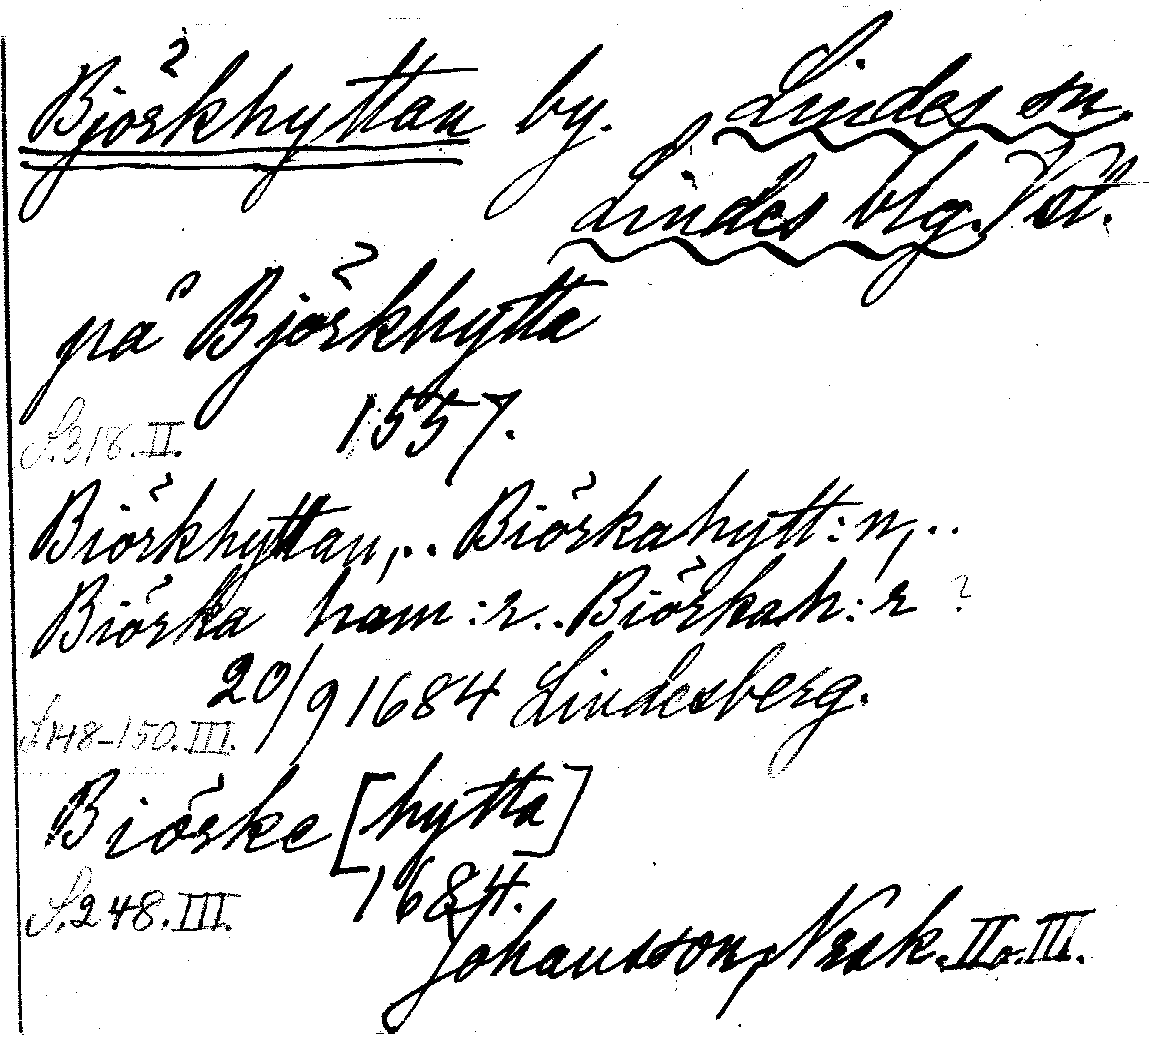 Björkhyttan by. Lindes sn.
Lindes blg. Vst.
på Björkhytta
1557.
S.318.II.
Biörkhyttan,.. Biörkahytt:n,..
Biörka ham:r.. Biörkah:r ?
20/9 1684 Lindesberg.
S.148-150.III.
Biörke [hytta]
1684.
S.248.III.
Johansson, Nssk. II o. III.